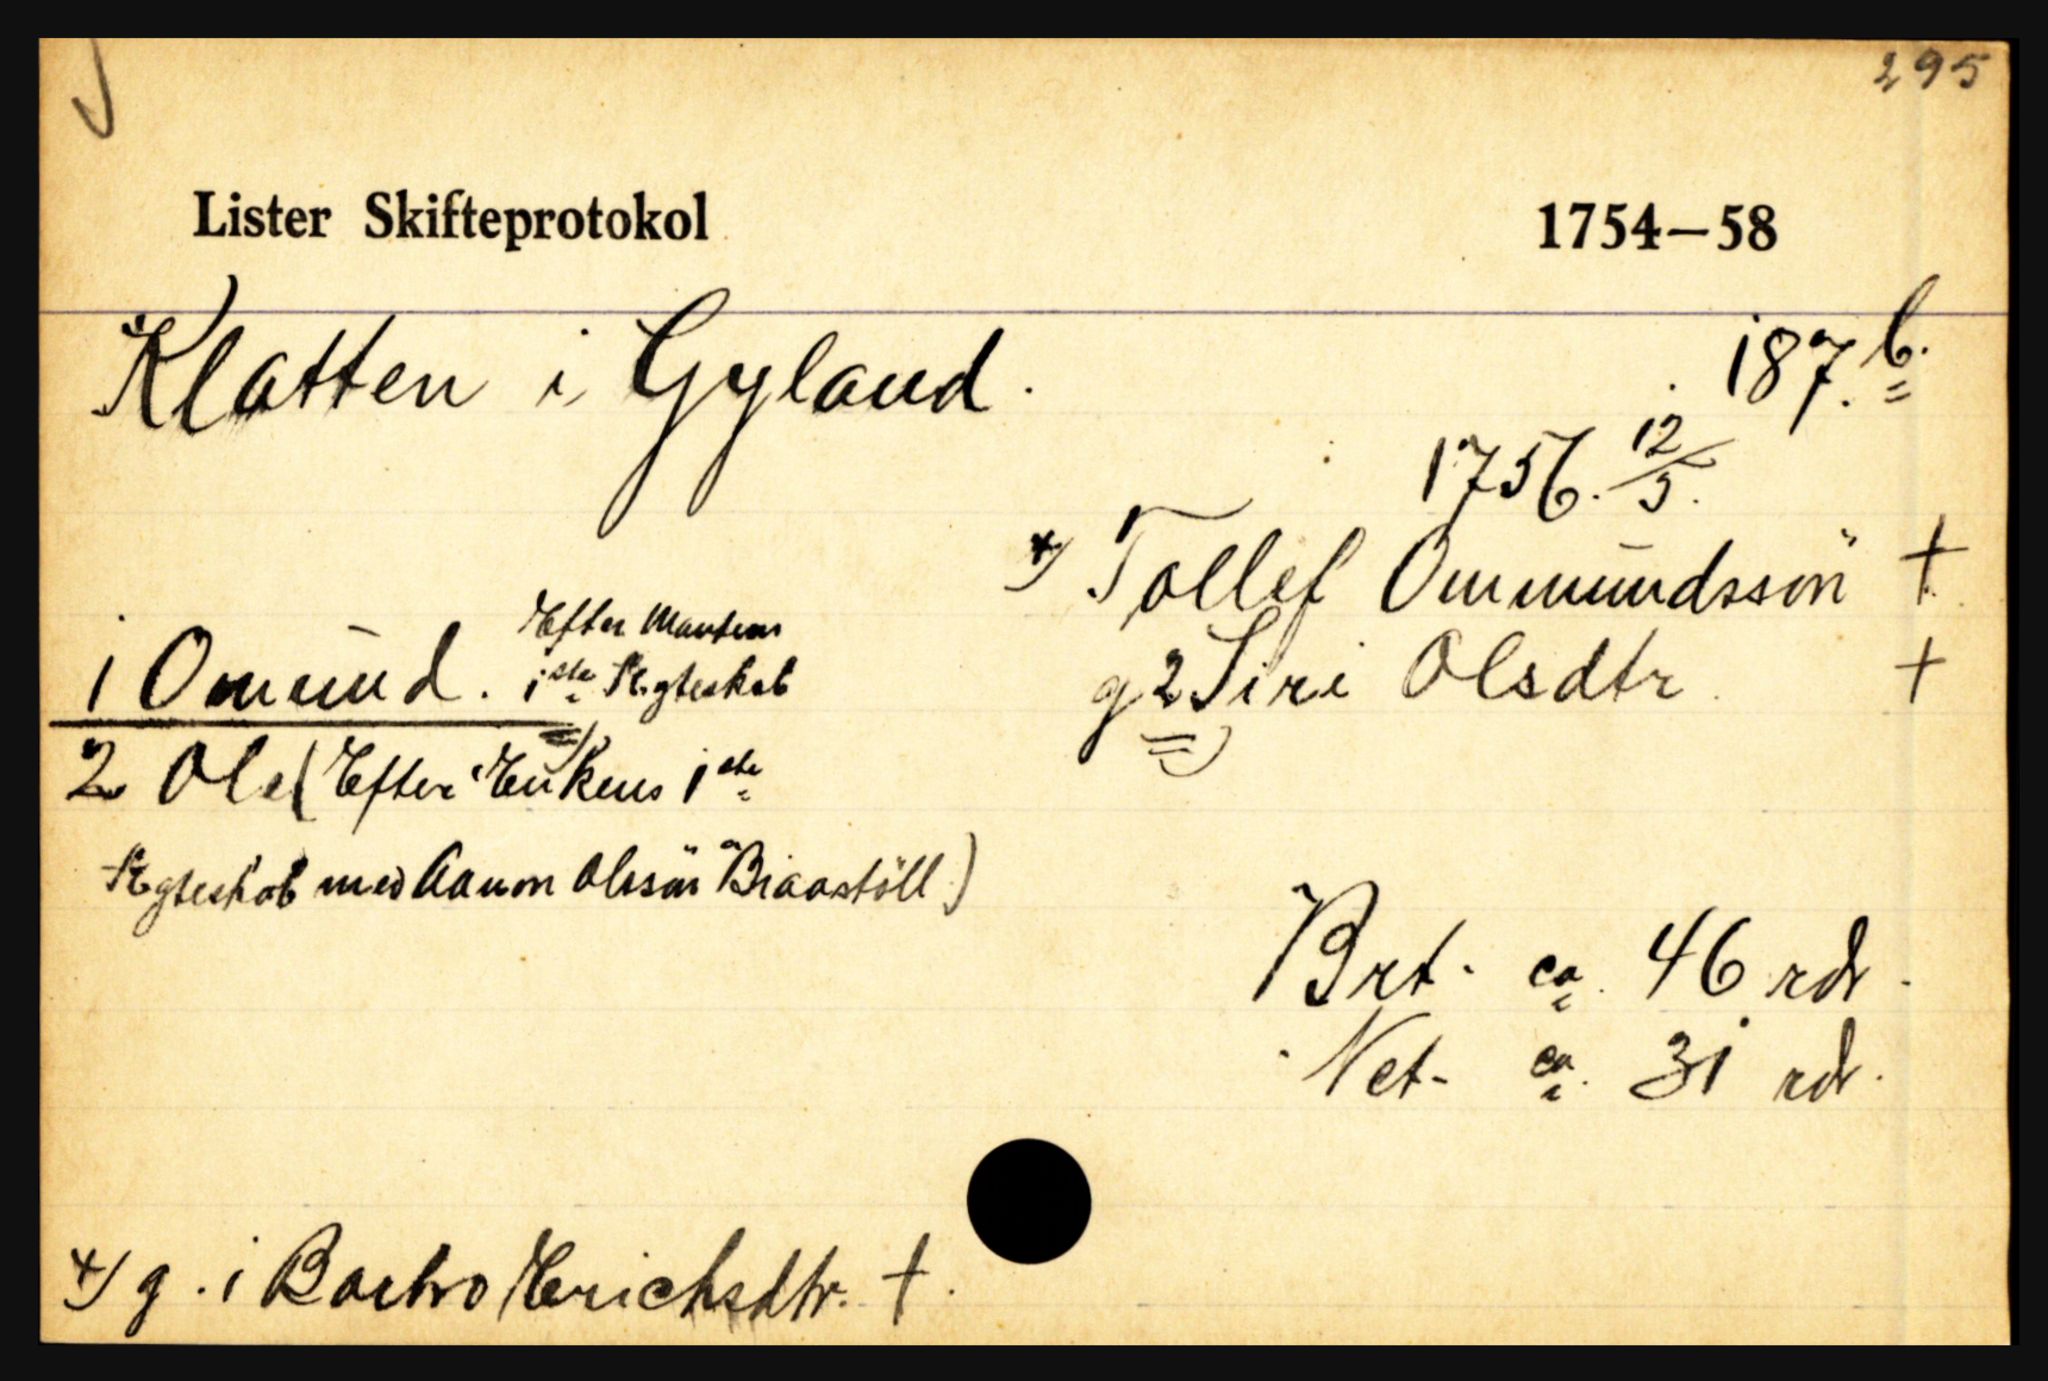 295
Lister Skifteprotokol 1754—58
Klatten i Gyland. 187.b.
1756. 12/5.
+) Tollef Ommūndssön +
g 2 Siri Olsdtr +
1 Omūnd. Efter Mantens
1ste Ægteskab
2 Ole (Efter Enkens 1ste
Ægteskab med Aanon Olssön Braastöll)
Brt. ca. 46 rdr.
Net. ca. 31 rdr.
+) g. 1 Barbro Erichsdtr. +